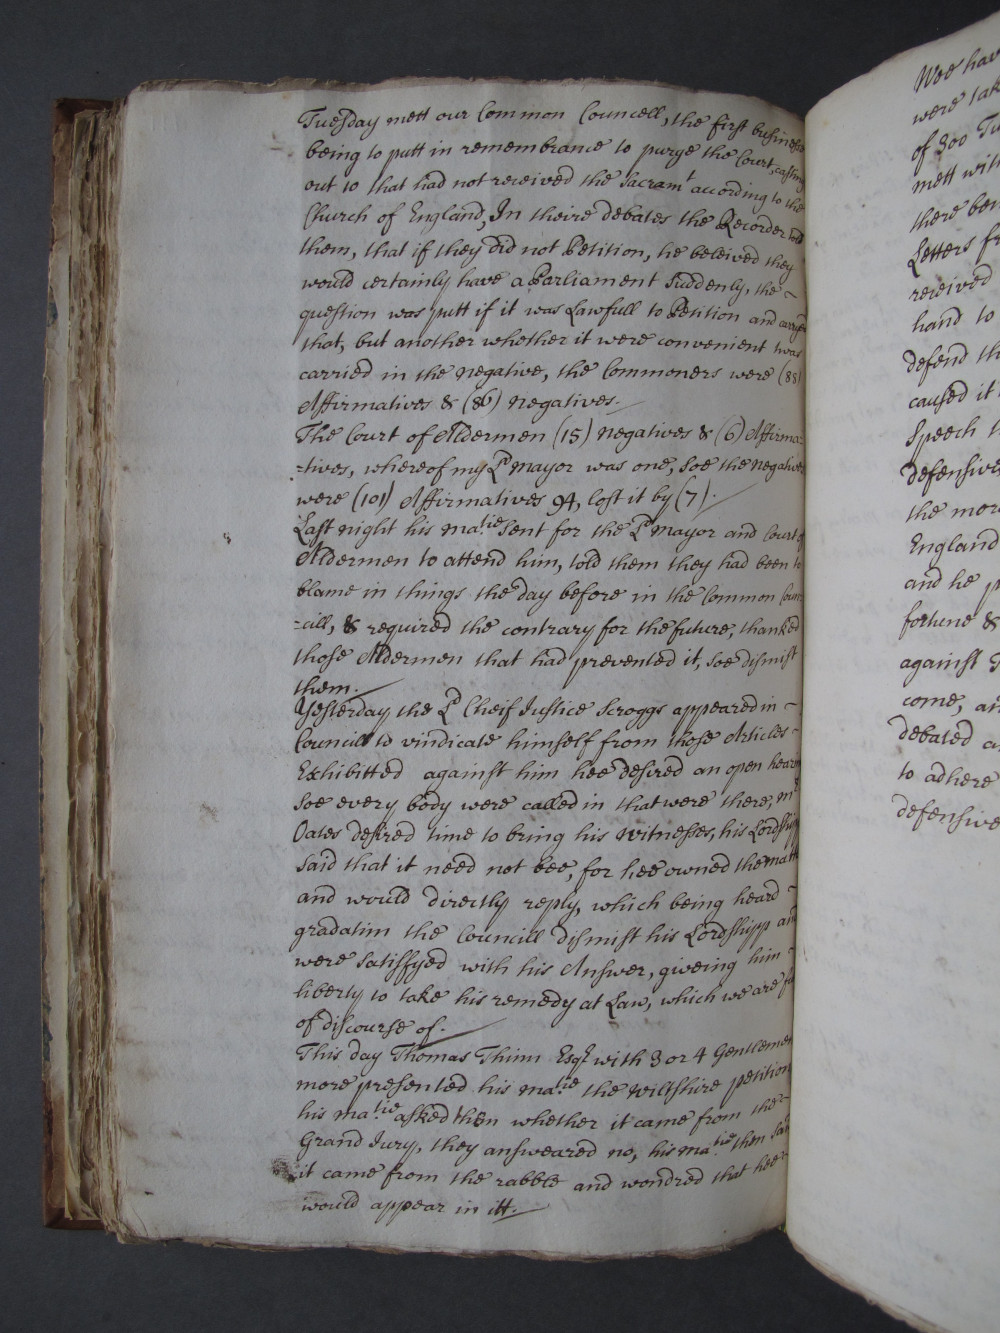 Tuesday mett our Common Councell, the first business
being to putt in remembrance to purge the Court, casting
out to that had not received the Sacramt according to the
Church of England, In theire debates the Recorder told
them, that if they did not Petition, he beleived they
would certainly have a Parliament suddenly, the ~
question was putt if it was Lawfull to Petition and carryed
that, but another whether it were convenient twas
carried in the negative, the Commoners were (88)
Affirmatives & (86) negatives.
The Court of Aldermen (15) negatives & (6) Affirma-
-tives, whereof my Ld Mayor was one, Soe the negatives
were (101) Affirmatives 94, lost it by (7).
Last night his matie sent for the Ld Mayor and Court of
Aldermen to attend him, told them they had been to
blame in things the day before in the Common Coun-
-cill, & required the contrary for the future, thanked
those Aldermen that had prevented it, soe dismist
them.
Yesterday the Ld Cheif Justice Scroggs appeared in ~
Councill to vindicate himself from those Articles ~
Exhibitted against him hee desired an open hearing
soe every body were called in that were there, mr
Oates desired time to bring his witnesses, his Lordshipp
said that it need not bee, for hee owned the matter
and would directly reply, which being heard ~
gradatim the Councill dismist his Lordshipp and
were satisfyed with his Answer, giveing him ~
liberty to take his remedy at Law, which we are
of discourse of.
This day Thomas Thinn Esqr with 3 or 4 Gentlemen
more presented his matie the Wiltshire petition
his matie asked then whether it came from the ~
Grand Jury, they answeared no, his matie then said
it came from the rabble and wondred that hee ~
would appear in itt.
Wee hav
were tak
of 300
mett wit
there ben
Letters fr
received
hand to
defend th
caused it
Speech
defensive
the mor
England
and he p
fortune &
against
come, an
debated
to adhere
defensive